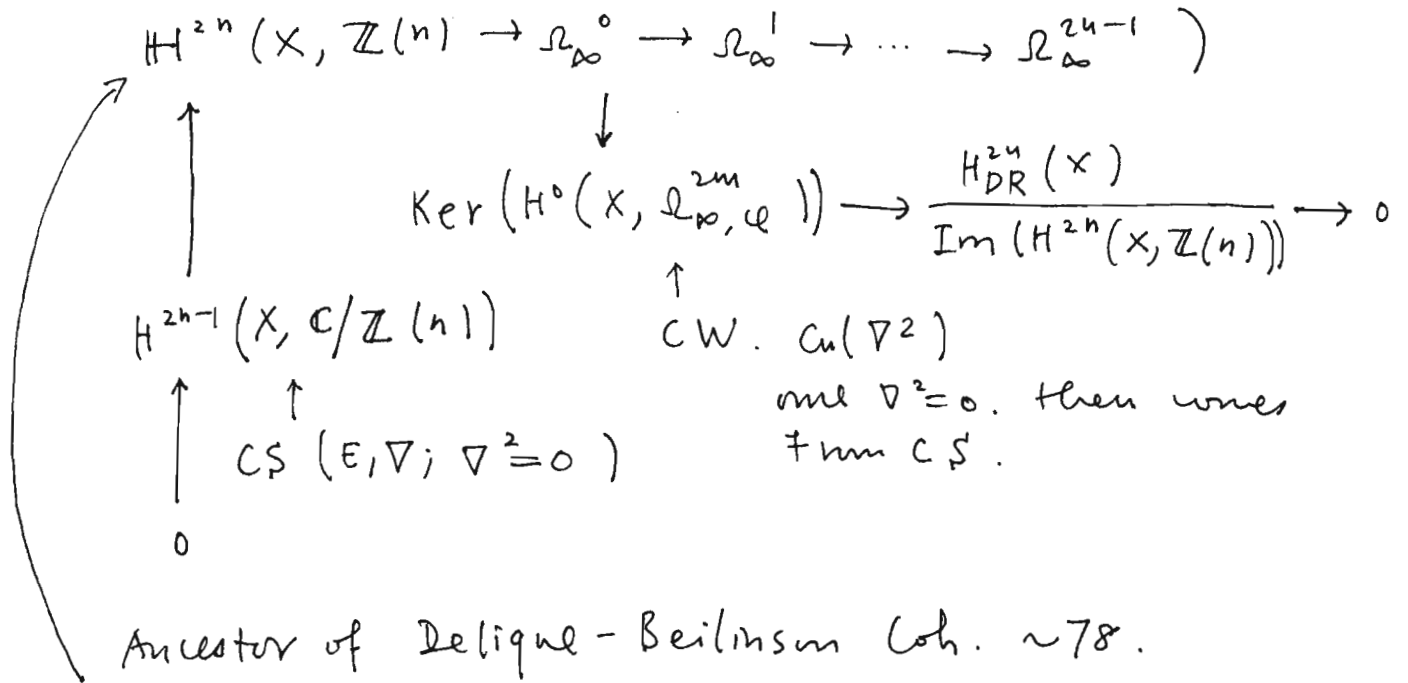 ℍ²ⁿ (X, ℤ(n) → Ω⁰_∞ → Ω¹_∞ → ... → Ω^{2n-1}_∞ )
↓
Ker (H⁰ (X, Ω^{2m}_{∞,cl} )) → H^{2n}_{DR} (X) / Im (H²ⁿ (X, ℤ(n))) → 0
H^{2n-1} (X, ℂ/ℤ (n))
CW. Cn(∇²)
one ∇²=0. then comes
CS (E, ∇; ∇²=0)
from CS.
0
Ancestor of Deligne-Beilinson Coh. ~78.